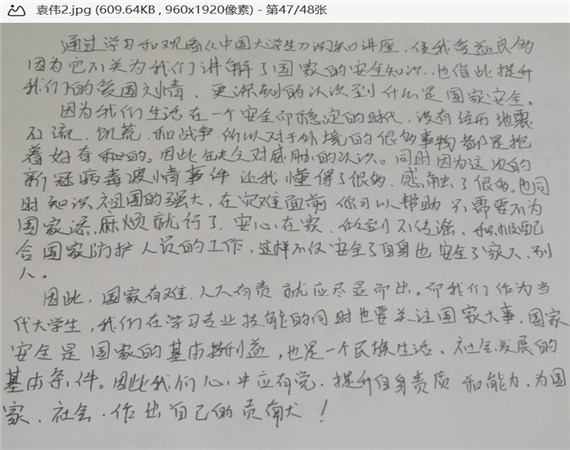 袁伟2.jpg (609.64KB , 960x1920像素) - 第47/48张
通过学习和观看《中国大学生》的知识讲座,使我受益良多
因为它不关为我们讲解了国家的安全知识,也借此提升
我们的爱国之情,更深刻的认识到什么是国家安全。
因为我们生活在一个安全而稳定的时代,没有经历地震
石流、饥荒、和战争,所以对于外境的很多事物都是抱
着好奇和的,因此缺少对威胁的认识。同时因为这次的
新冠病毒疫情事件让我懂得了很多,感触了很多。也同
时知识祖国的强大,在灾难面前你可以帮助只需要不为
国家添麻烦就行了,安心在家,做到不传谣,积极配
合国家防护人员的工作,这样不仅安全了自身也安全了家人、别
人。
因此,国家有难,人人有责就应尽显而出。而我们作为当
代大学生,我们在学习专业技能的同时也要关注国家大事,国家
安全是国家的基本利益,也是一个民族生活、社会发展的
基本条件。因此我们心中应有党,提升自身素质和能力,为国
家、社会,作出自己的贡献!